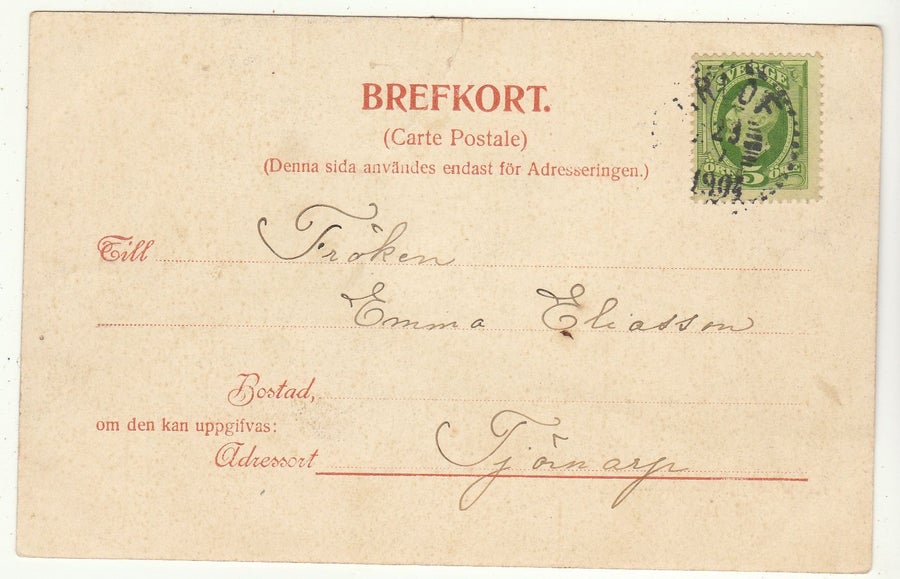 BREFKORT.
(Carte Postale)
(Denna sida användes endast för Adresseringen.)
SVERIGE
5
1904
Till Fröken
Emma Eliasson
Bostad,
om den kan uppgifvas:
Adressort Tjörnarp